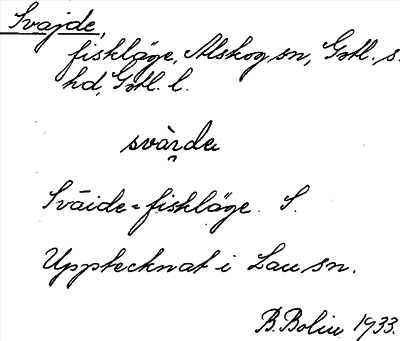 Svajde,
fiskläge, Alskog sn, Gotl. s.
hd, Gotl. l.
Sväide = fiskläge. S.
Upptecknat i Lau sn.
B. Bolin 1933.